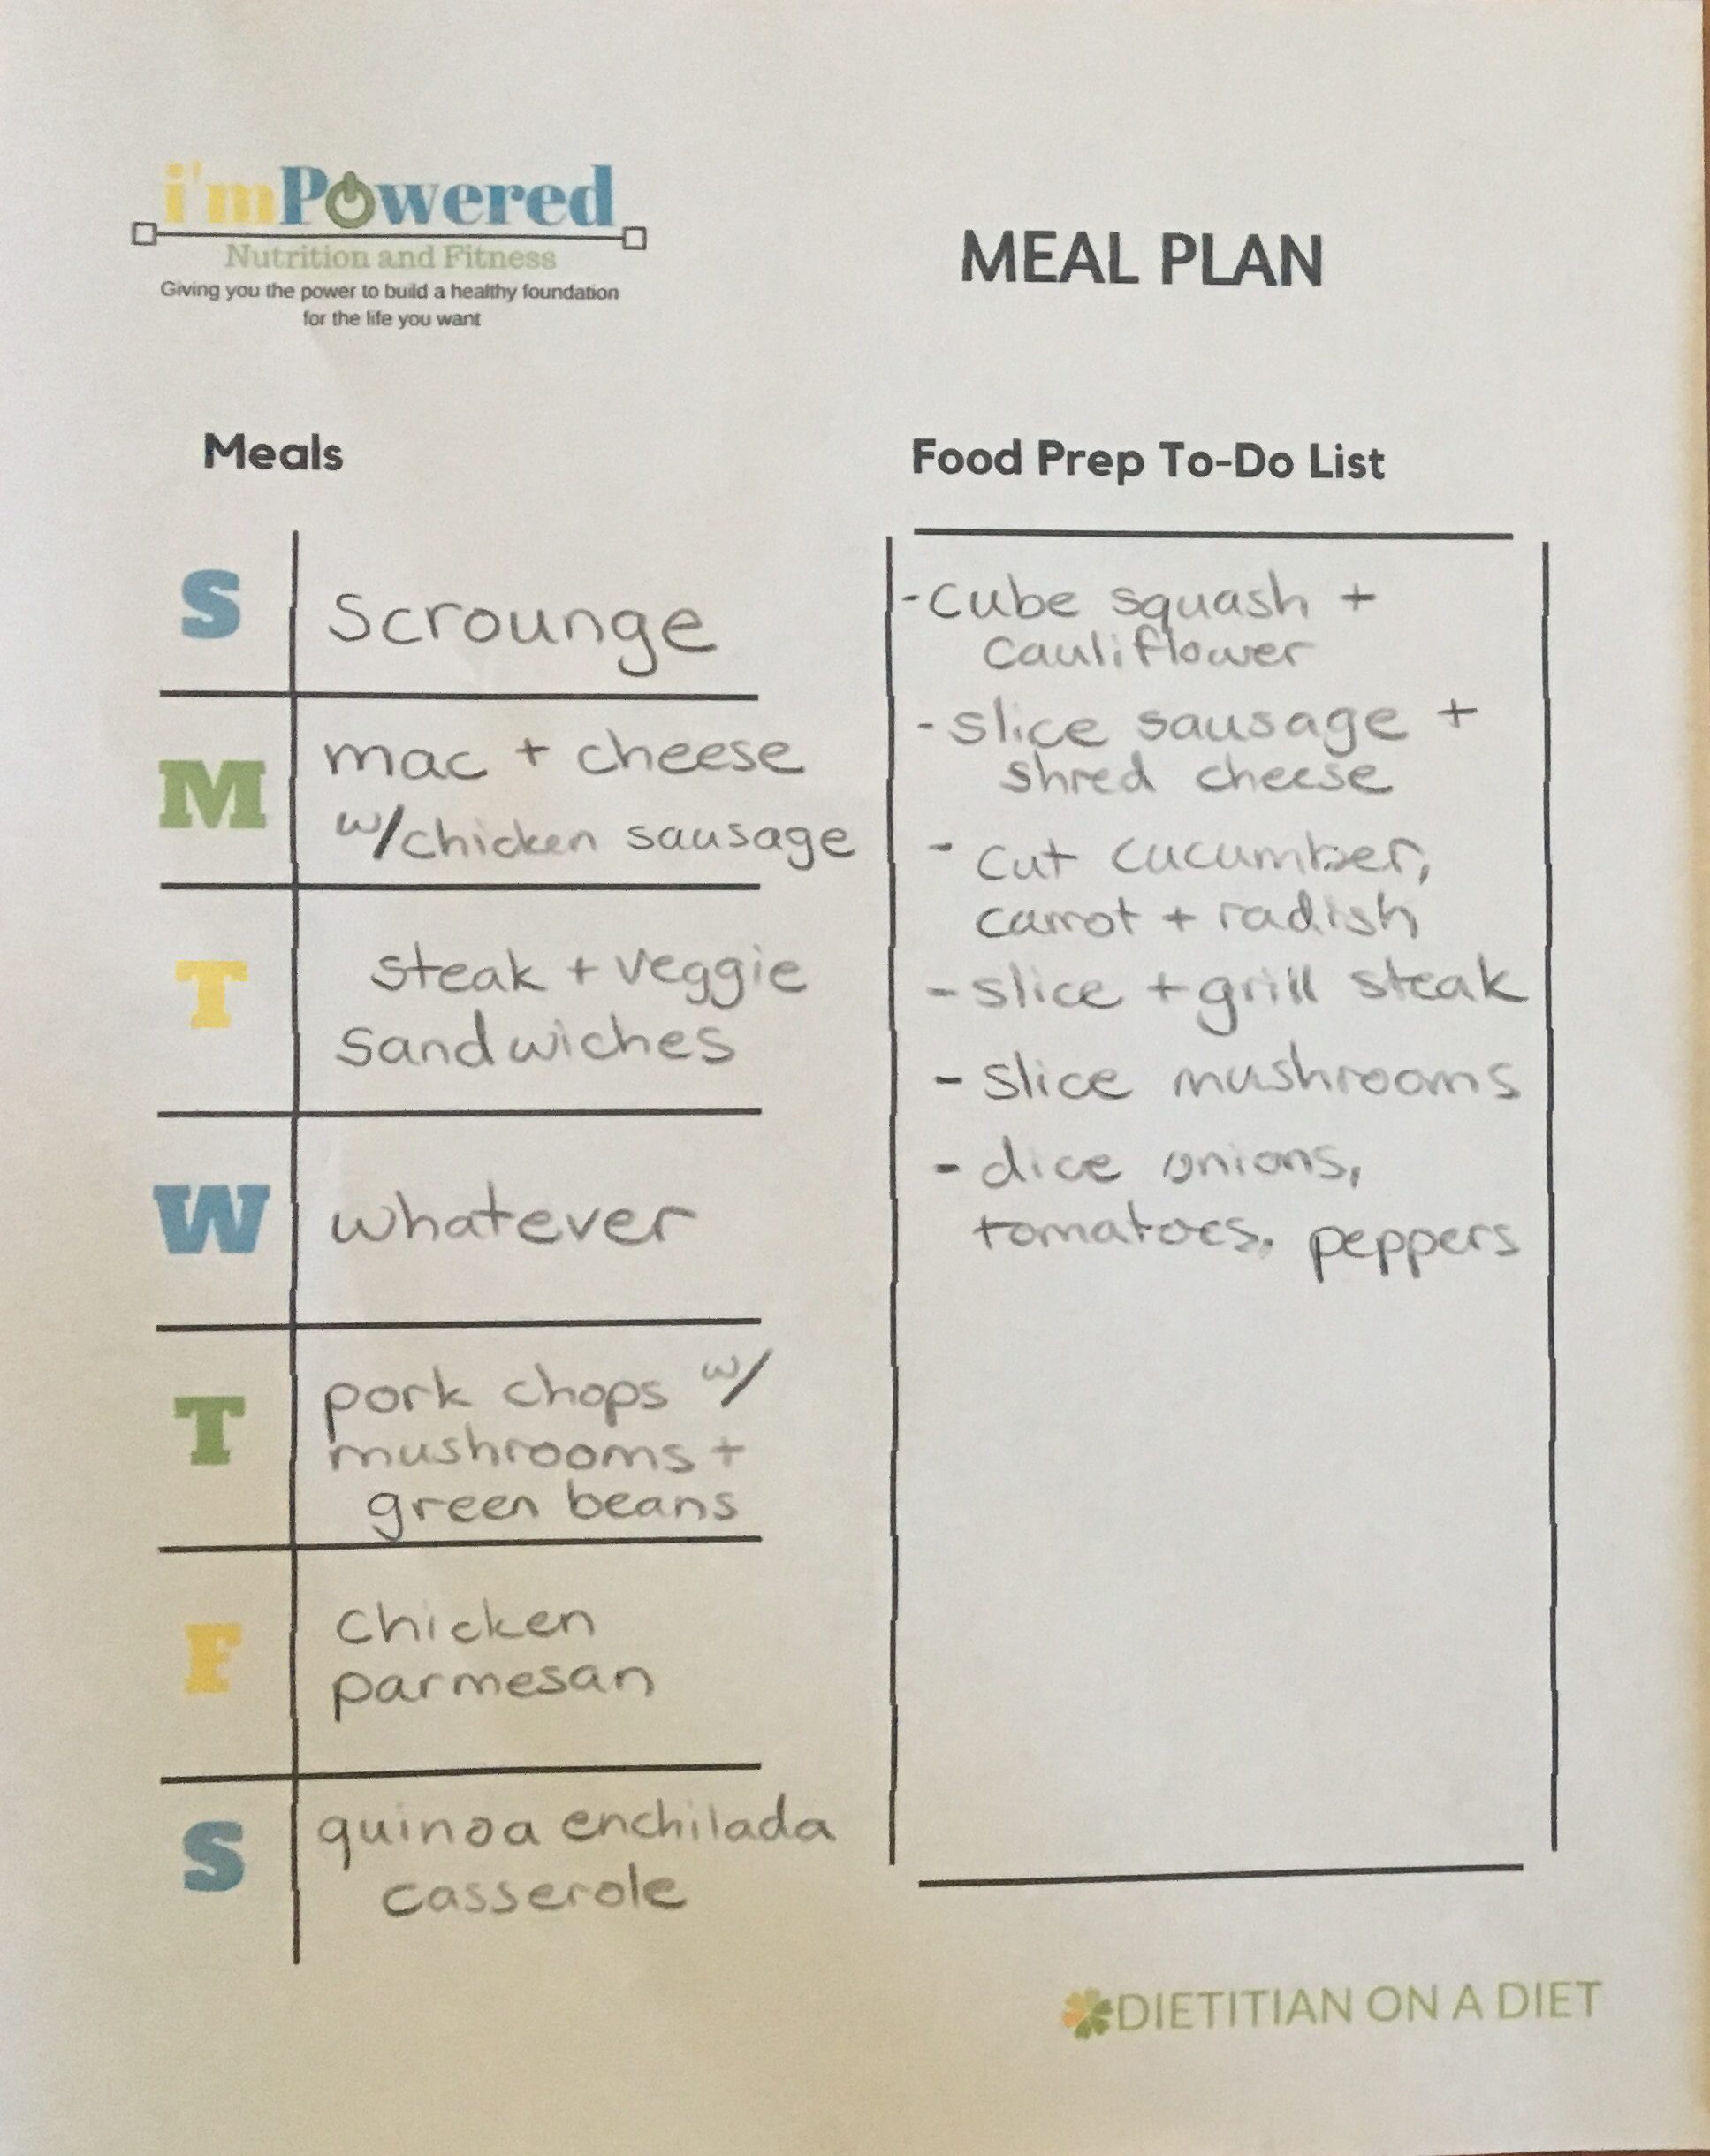 i'mPowered
Nutrition and Fitness
Giving you the power to build a healthy foundation
for the life you want
MEAL PLAN
Meals
S
scrounge
M
mac + cheese
w/chicken sausage
T
steak + veggie
sandwiches
W
whatever
T
pork chops w/
mushrooms +
green beans
F
chicken
parmesan
S
quinoa enchilada
casserole
Food Prep To-Do List
- cube squash +
cauliflower
- slice sausage +
shred cheese
- cut cucumber,
carrot + radish
- slice + grill steak
- slice mushrooms
- dice onions,
tomatoes, peppers
DIETITIAN ON A DIET